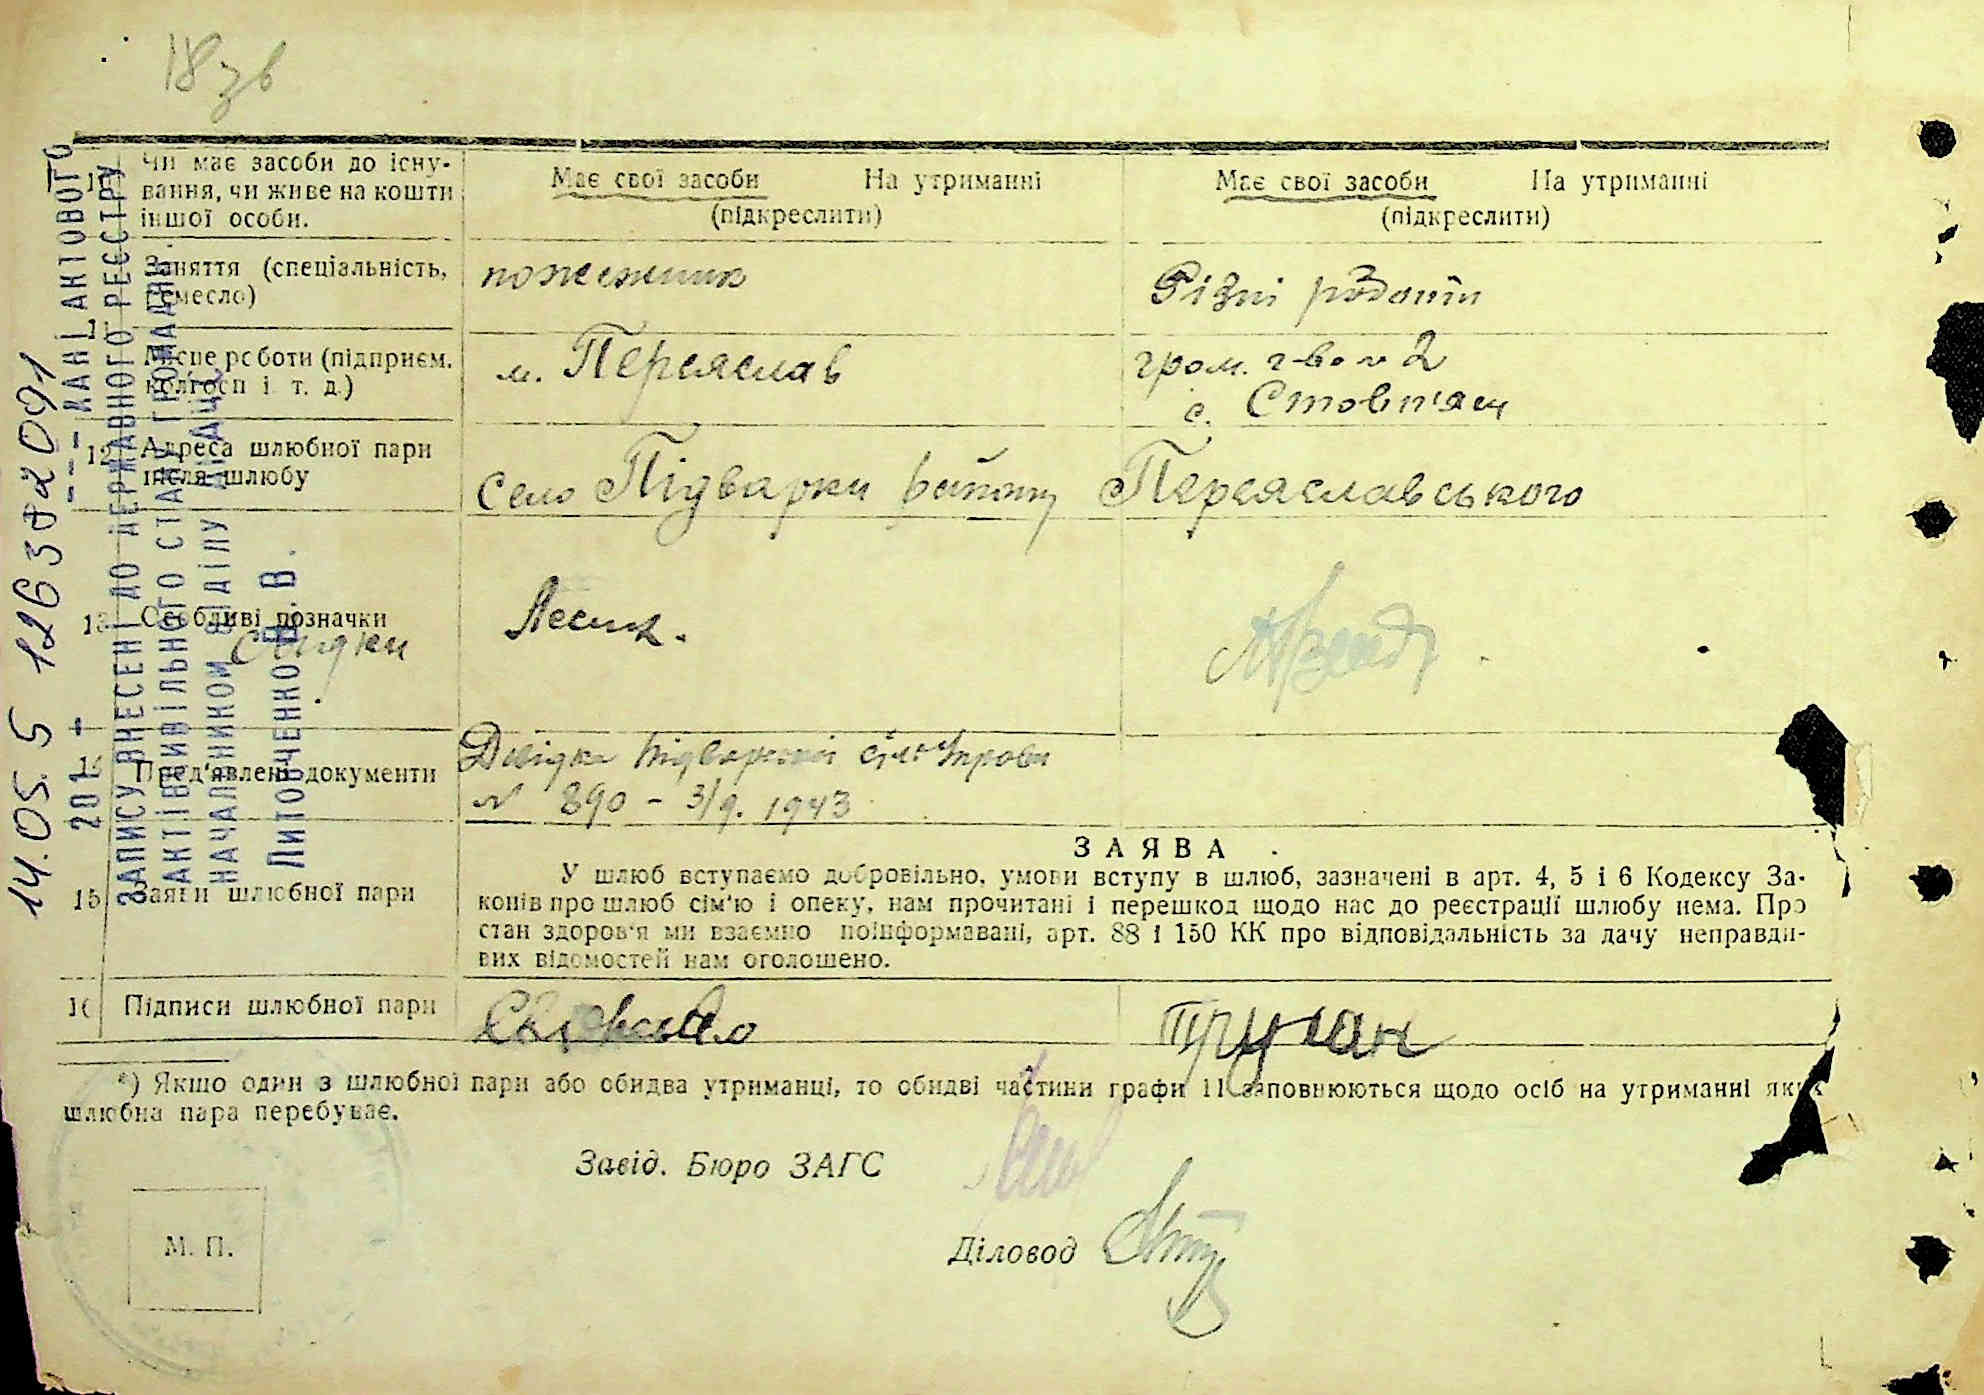 18 зв
Чи має засоби до існу-
вання, чи живе на кошти
іншої особи.
Має свої засоби На утриманні
(підкреслити)
Має свої засоби На утриманні
(підкреслити)
Заняття (спеціальність,
ремесло)
пожежник
Різні роботи
Місце роботи (підприєм.
колгосп і т. д.)
м. Переяслав
гром. г-во № 2
с. Стовп'яги
12 Адреса шлюбної пари
після шлюбу
Село Підварки району Переяславського
13 Особливі позначки
свідки
Лесик.
Пред'явлені документи
Довідка Підварської сіль управи
№ 890 – 3/9. 1943
ЗАЯВА
15 Заяви шлюбної пари
У шлюб вступаємо добровільно, умови вступу в шлюб, зазначені в арт. 4, 5 і 6 Кодексу За-
конів про шлюб сім'ю і опеку, нам прочитані і перешкод щодо нас до реєстрації шлюбу нема. Про
стан здоров'я ми взаємно поінформавані, арт. 88 і 150 КК про відповідальність за дачу неправди-
вих відомостей нам оголошено.
16 Підписи шлюбної пари
Трухан
*) Якщо один з шлюбної пари або обидва утриманці, то обидві частини графи 11 заповнюються щодо осіб на утриманні яких
шлюбна пара перебуває.
Завід. Бюро ЗАГС
Діловод
М. П.
14.05. 5 126382091
201 – – – – КАНІ АКТОВОГО
ЗАПИСУ ВНЕСЕНІ ДО ДЕРЖАВНОГО РЕЄСТРУ
АКТІВ ЦИВІЛЬНОГО СТАНУ ГРОМАДЯН.
НАЧАЛЬНИКОМ ВІДДІЛУ
Литовченко В. В.